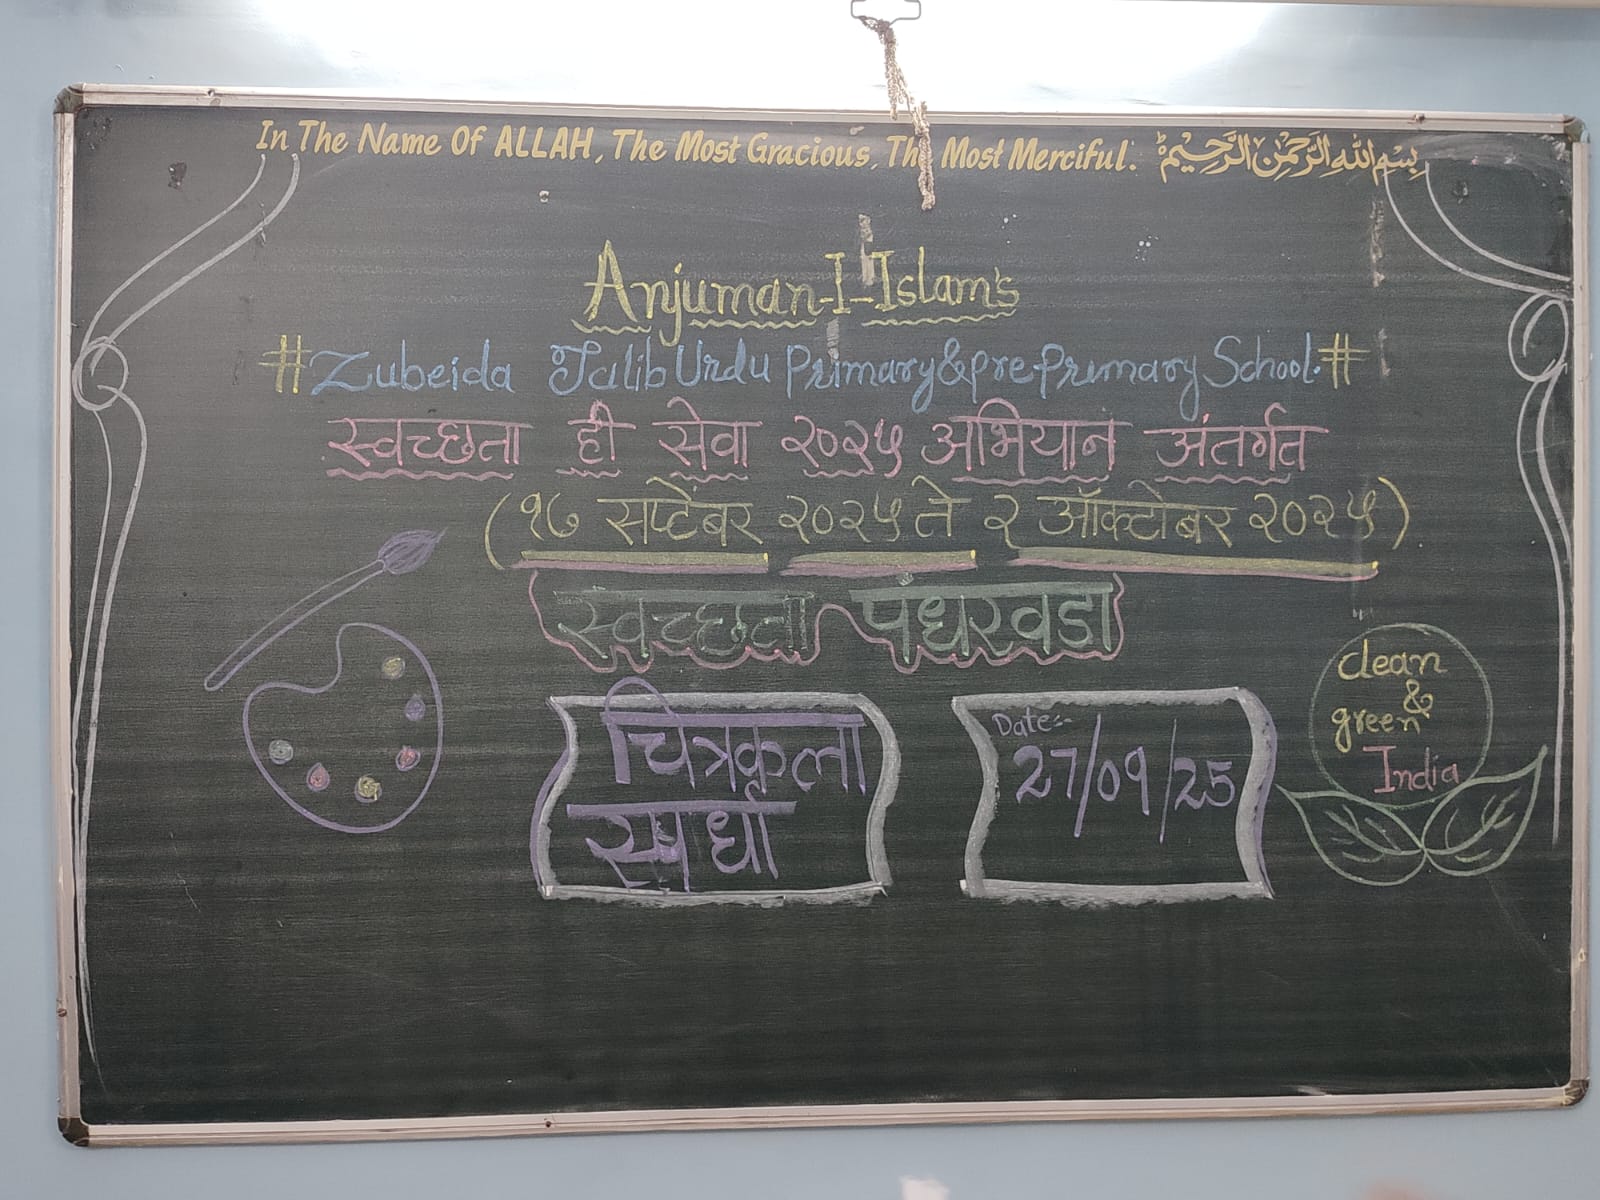 In The Name Of ALLAH, The Most Gracious, The Most Merciful. بِسْمِ اللهِ الرَّحْمٰنِ الرَّحِيْمِ
Anjuman-I-Islam's
#Zubeida Talib Urdu Primary & pre primary School.#
स्वच्छता ही सेवा २०२५ अभियान अंतर्गत
(१७ सप्टेंबर २०२५ ते २ ऑक्टोबर २०२५)
स्वच्छता पंधरवडा
चित्रकला
स्पर्धा
Date:-
27/09/25
clean
&
green
India